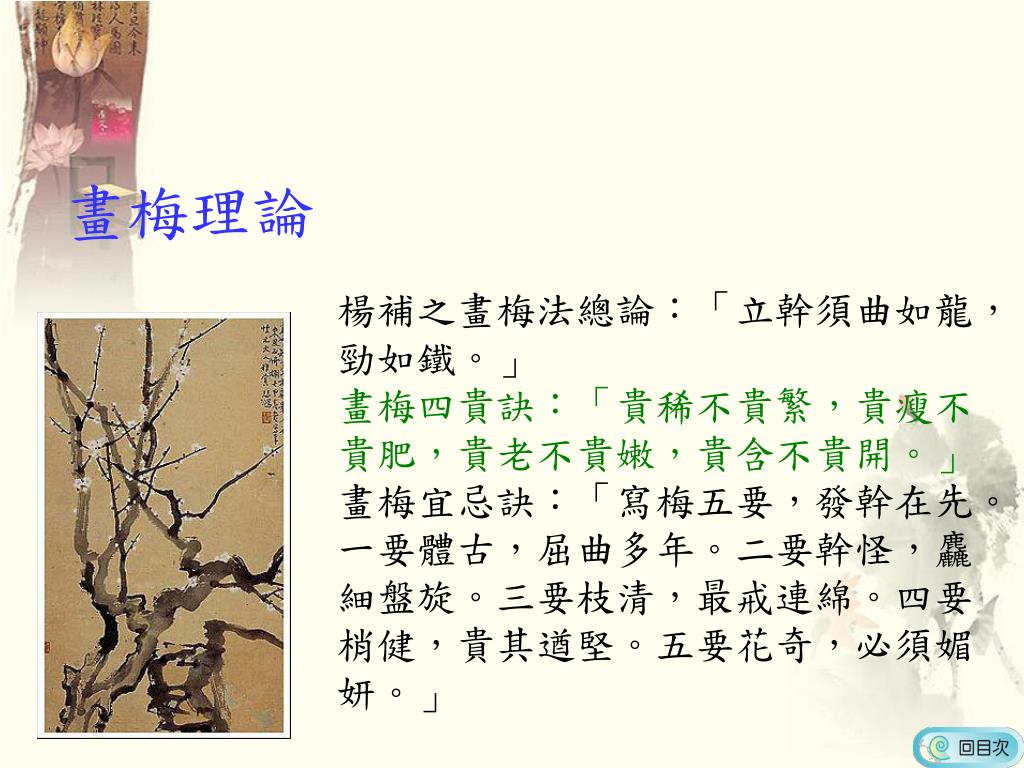 畫梅理論
楊補之畫梅法總論：「立幹須曲如龍，
勁如鐵。」
畫梅四貴訣：「貴稀不貴繁，貴瘦不
貴肥，貴老不貴嫩，貴含不貴開。」
畫梅宜忌訣：「寫梅五要，發幹在先。
一要體古，屈曲多年。二要幹怪，麤
細盤旋。三要枝清，最戒連綿。四要
梢健，貴其遒堅。五要花奇，必須媚
妍。」
回目次